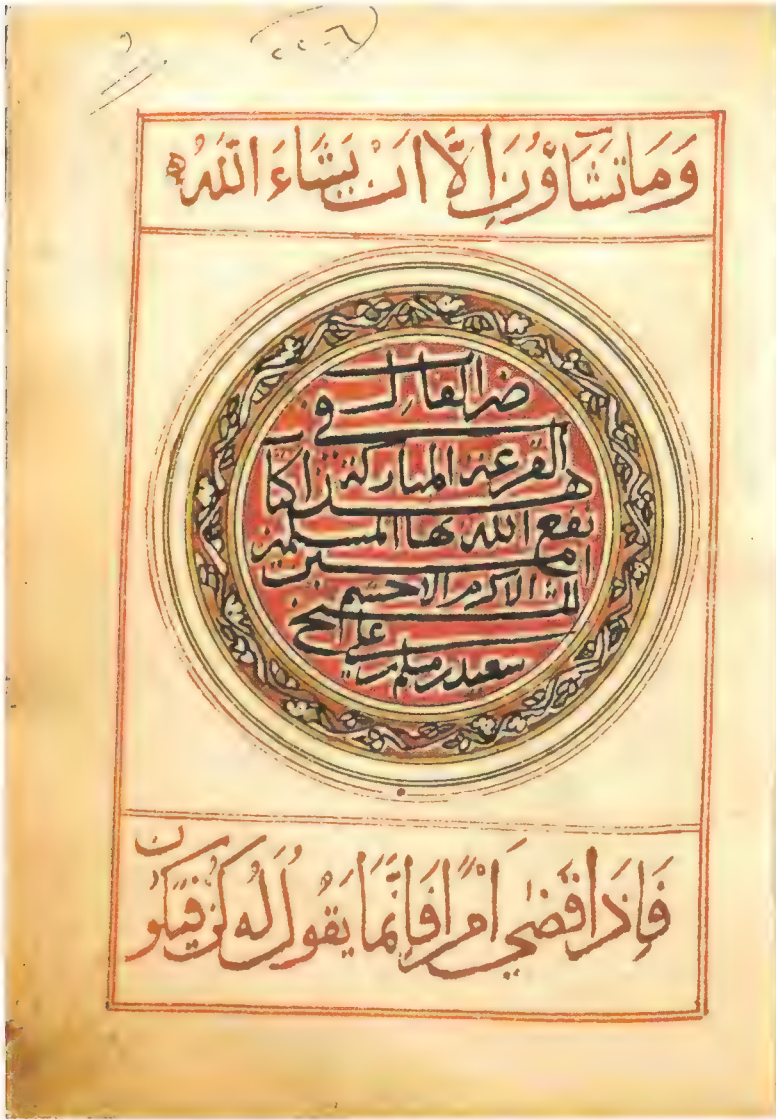 ٢٢٠٦
وَمَا تَشَاؤُنَ اِلَّا اَنْ يَشَاءَ اللّٰهُ
ض الفال في
القرعة المباركة
هذا كتاب
نفع الله بها المسلمين
امين
الاكرم الاحشم
الشيخ علي
سعيد بن مسلم بن
فَاِذَا قَضٰى اَمْرًا فَاِنَّمَا يَقُولُ لَهُ كُنْ فَيَكُونُ